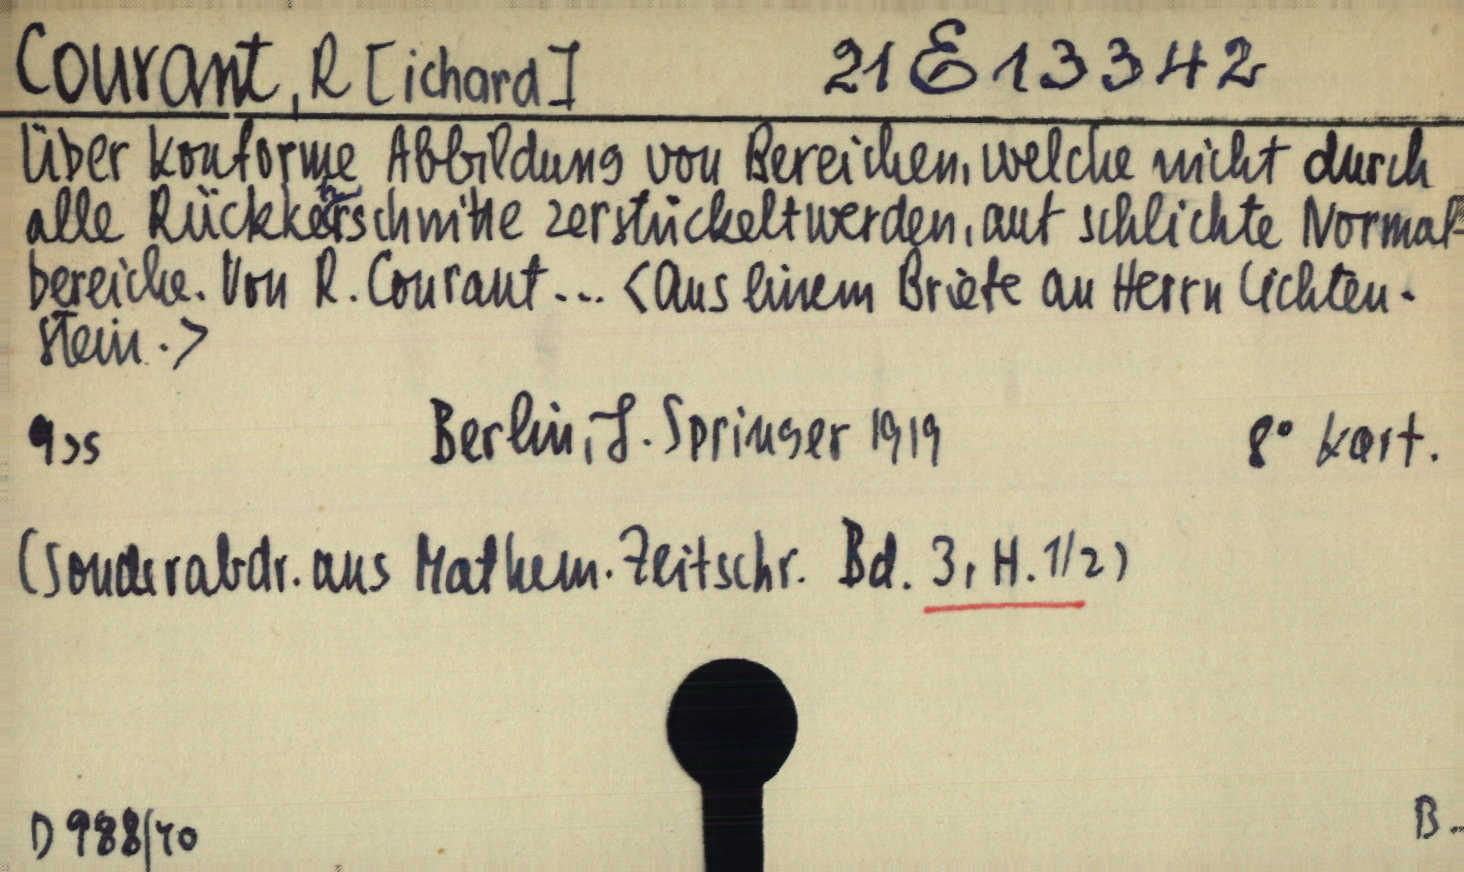 Courant, R [ichard] 21 E 13342
Über konforme Abbildung von Bereichen, welche nicht durch
alle Rückkehrschnitte zerstückelt werden, auf schlichte Normal-
bereiche. Von R. Courant... <Aus einem Briefe an Herrn Lichten-
stein.>
Berlin, J. Springer 1919 8° kart.
(Sonderabdr. aus Mathem. Zeitschr. Bd. 3, H. 1/2)
D 988/40
B..